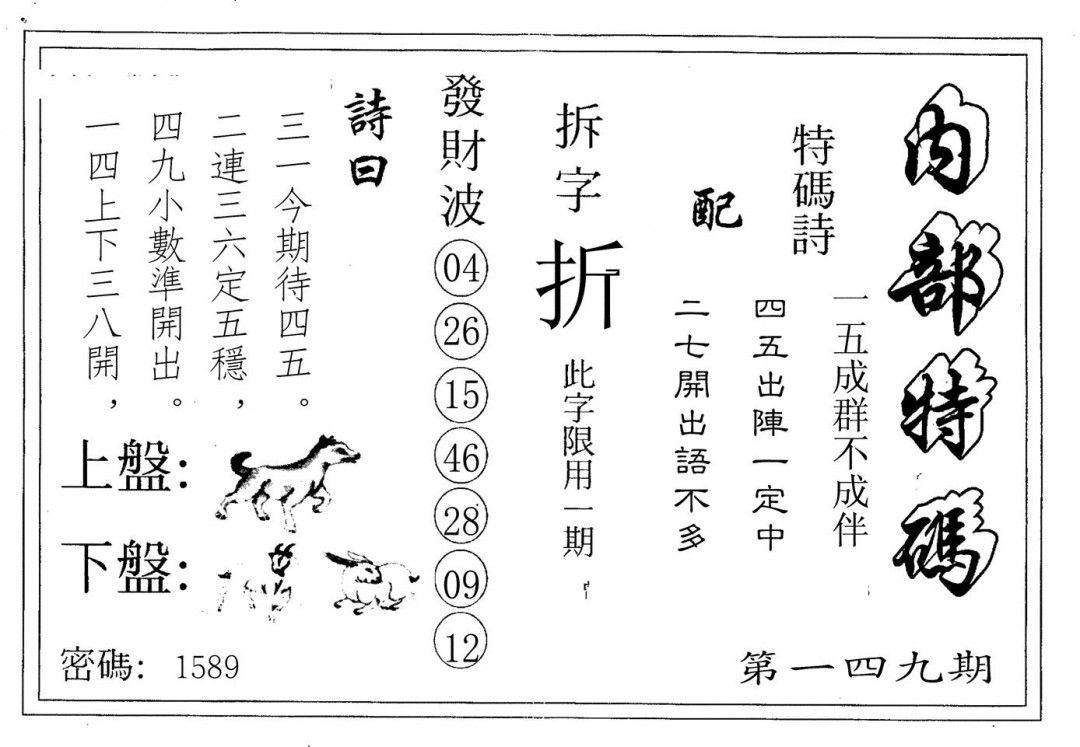 內部特碼
第一四九期
特碼詩
一五成群不成伴
四五出陣一定中
配
二七開出語不多
拆字
折
此字限用一期
發財波
04
26
15
46
28
09
12
詩曰
三一今期待四五。
二連三六定五穩，
四九小數準開出。
一四上下三八開，
上盤：
下盤：
密碼：1589